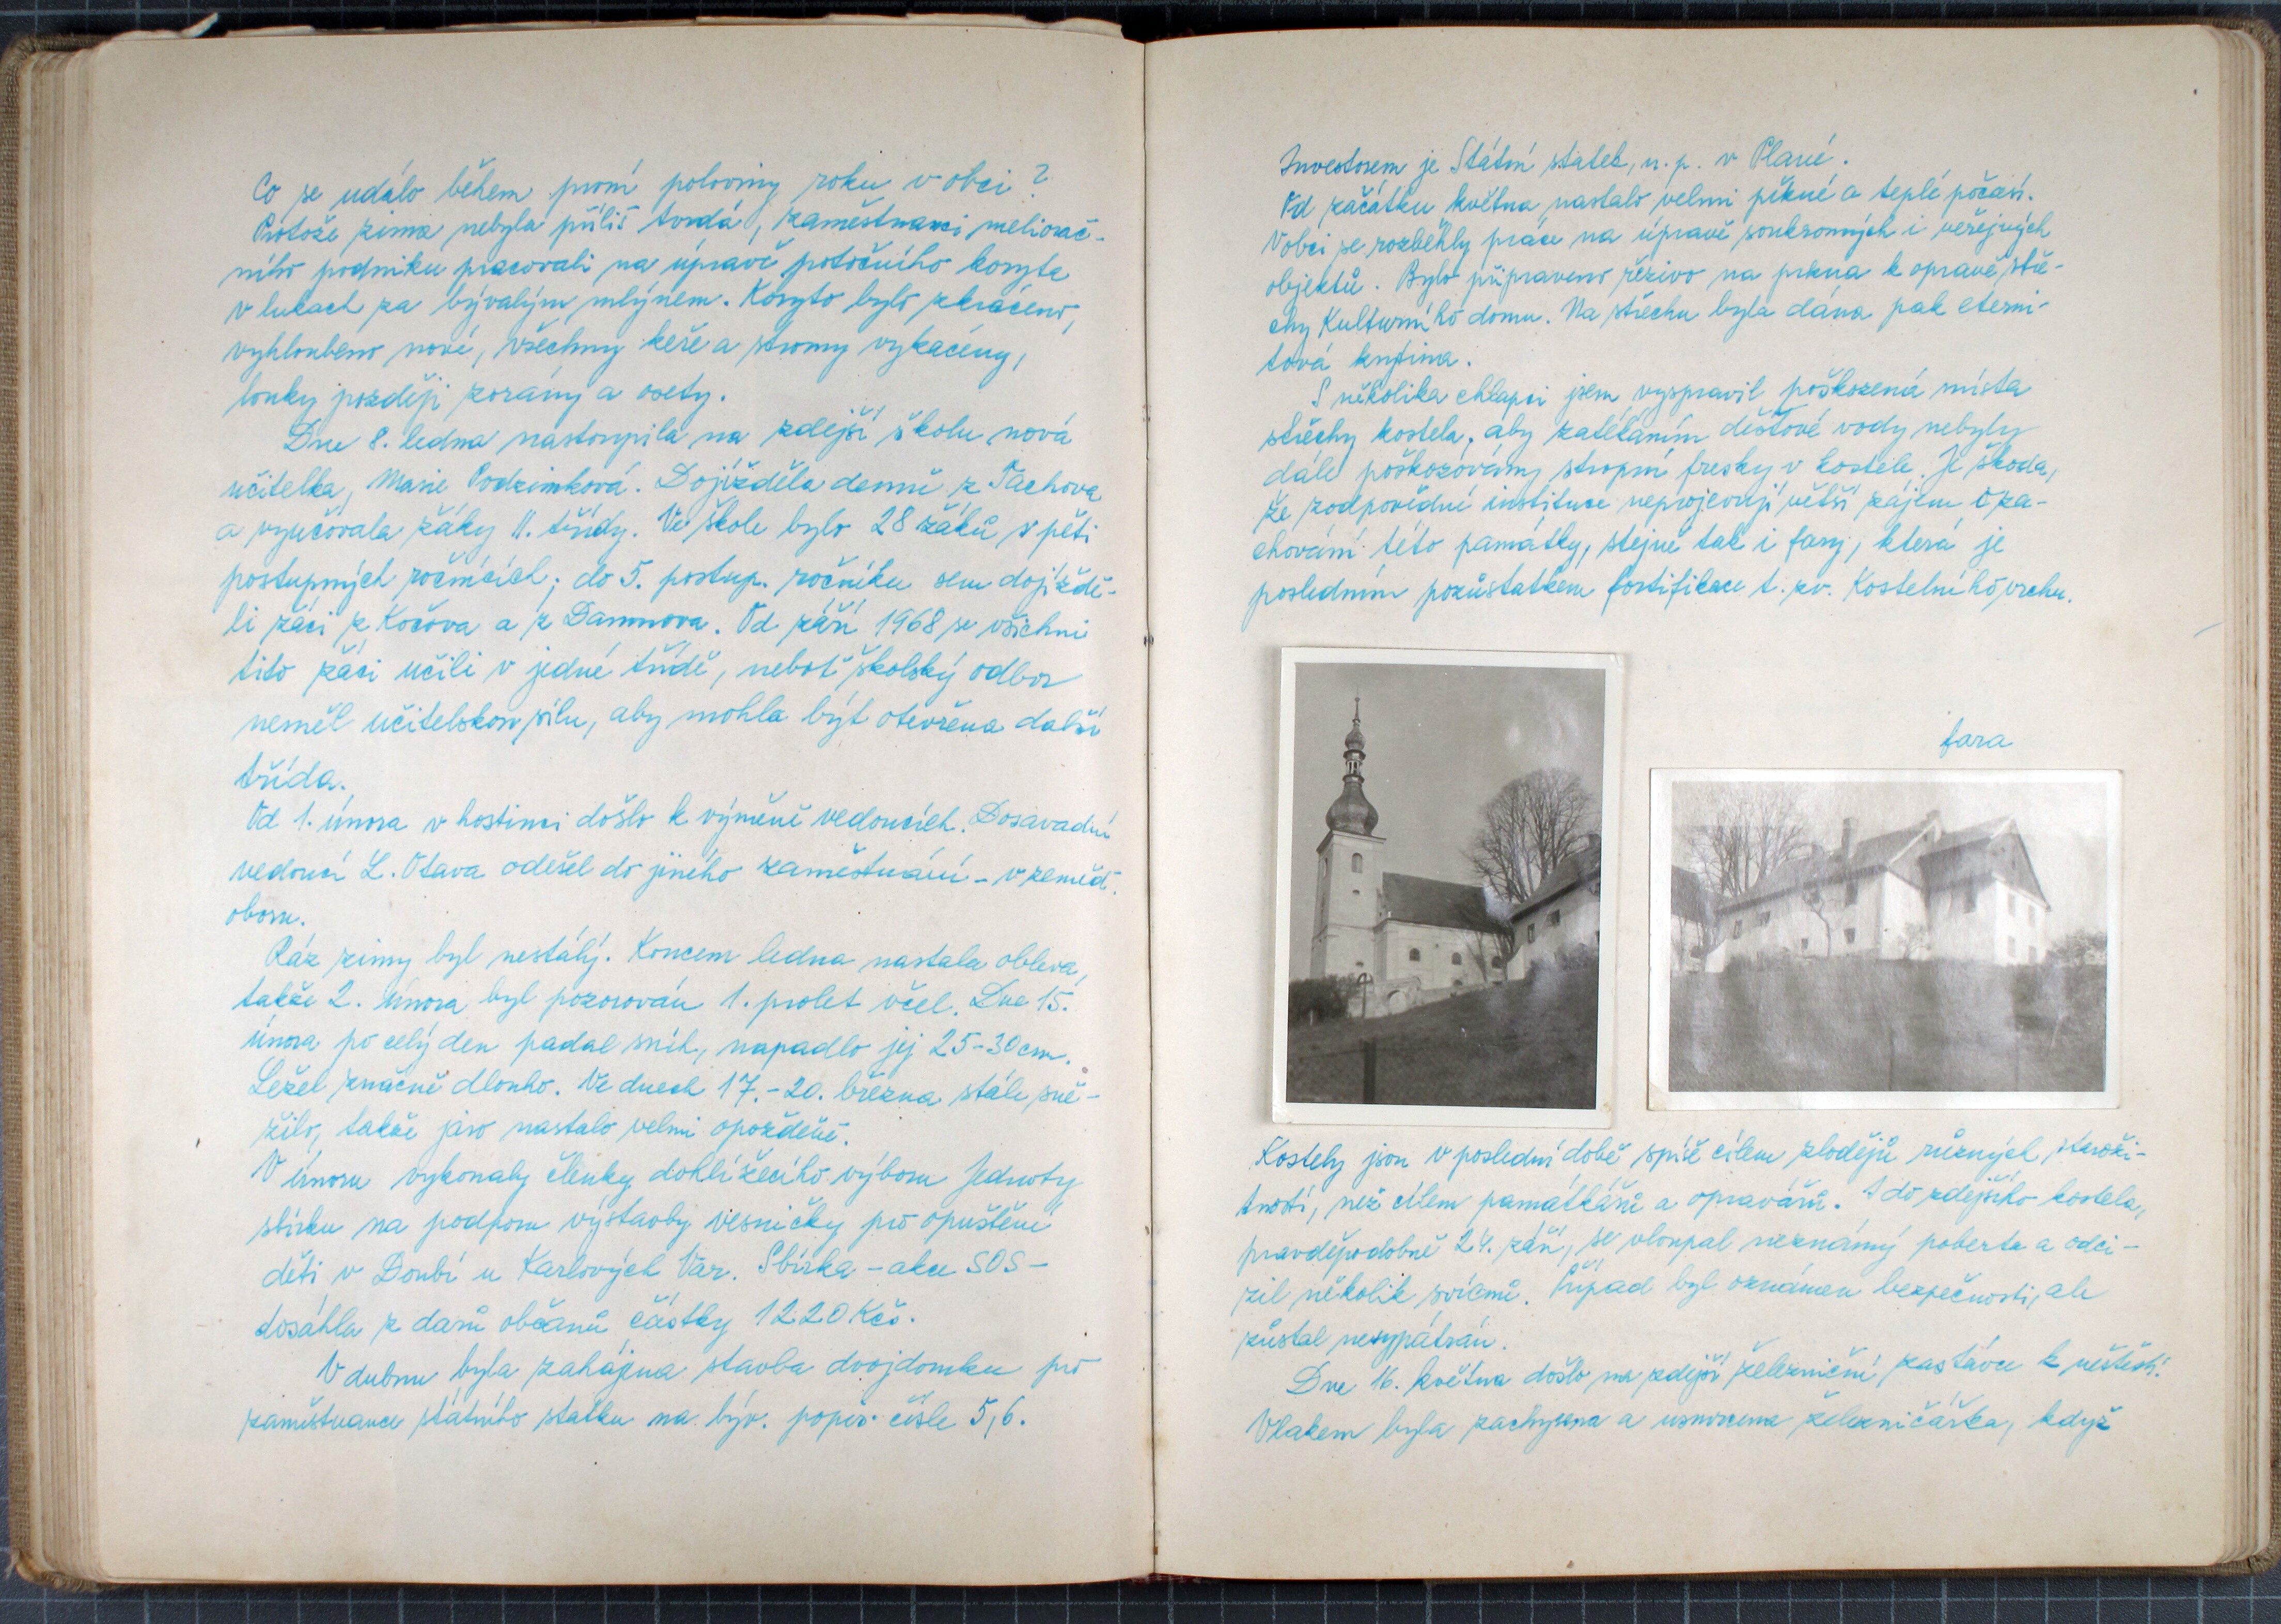 Co se událo během první poloviny roku v obci?
Protože zima nebyla příliš tvrdá, zaměstnanci meliorač-
ního podniku pracovali na úpravě potočního koryta
v lukach za bývalým mlýnem. Koryto bylo zkráceno,
vyhloubeno nové, všechny keře a stromy vykáceny,
louky později zorány a osety.
Dne 8. ledna nastoupila na zdejší školu nová
učitelka, Marie Podzimková. Dojížděla denně z Tachova
a vyučovala žáky II. třídy. Ve škole bylo 28 žáků v pěti
postupných ročnících; do 5. postup. ročníku sem dojíždě-
li žáci z Kočova a z Damnova. Od září 1968 se všichni
tito žáci učili v jedné třídě, neboť školský odbor
neměl učitelskou sílu, aby mohla být otevřena další
třída.
Od 1. února v hostinci došlo k výměně vedoucích. Dosavadní
vedoucí L. Otava odešel do jiného zaměstnání - v zeměd.
oboru.
Ráz zimy byl nestálý. Koncem ledna nastala obleva,
takže 2. února byl pozorován 1. prolet včel. Dne 15.
února po celý den padal sníh, napadlo jej 25-30 cm.
Ležel značně dlouho. Ve dnech 17.-20. března stále sně-
žilo, takže jaro nastalo velmi opožděně.
V únoru vykonaly členky dohlížecího výboru Jednoty
sbírku na podporu výstavby vesničky pro opuštěné
děti v Doubí u Karlových Var. Sbírka - akce SOS -
dosáhla z darů občanů částky 1220 Kčs.
V dubnu byla zahájena stavba dvojdomku pro
zaměstnance státního statku na býv. popis. čísle 5, 6.
Investorem je Státní statek, n. p. v Plané.
Od začátku května nastalo velmi pěkné a teplé počasí.
V obci se rozběhly práce na úpravě soukromých i veřejných
objektů. Bylo připraveno řezivo na prkna k opravě stře-
chy Kulturního domu. Na střechu byla dána pak eterni-
tová krytina.
S několika chlapci jsem vyspravil poškozená místa
střechy kostela, aby zatékáním dešťové vody nebyly
dále poškozovány stropní fresky v kostele. Je škoda,
že zodpovědné instituce neprojevují větší zájem o za-
chování této památky, stejně tak i fary, která je
posledním pozůstatkem fortifikace t. zv. Kostelního vrchu.
fara
Kostely jsou v poslední době spíš cílem zlodějů různých staroži-
tností, než cílem památkářů a opravářů. I do zdejšího kostela,
pravděpodobně 24. září, se vloupal neznámý poberta a odci-
zil několik svícnů. Případ byl oznámen bezpečnosti, ale
zůstal nevypátrán.
Dne 16. května došlo na zdejší železniční zastávce k neštěstí.
Vlakem byla zachycena a usmrcena železničářka, když